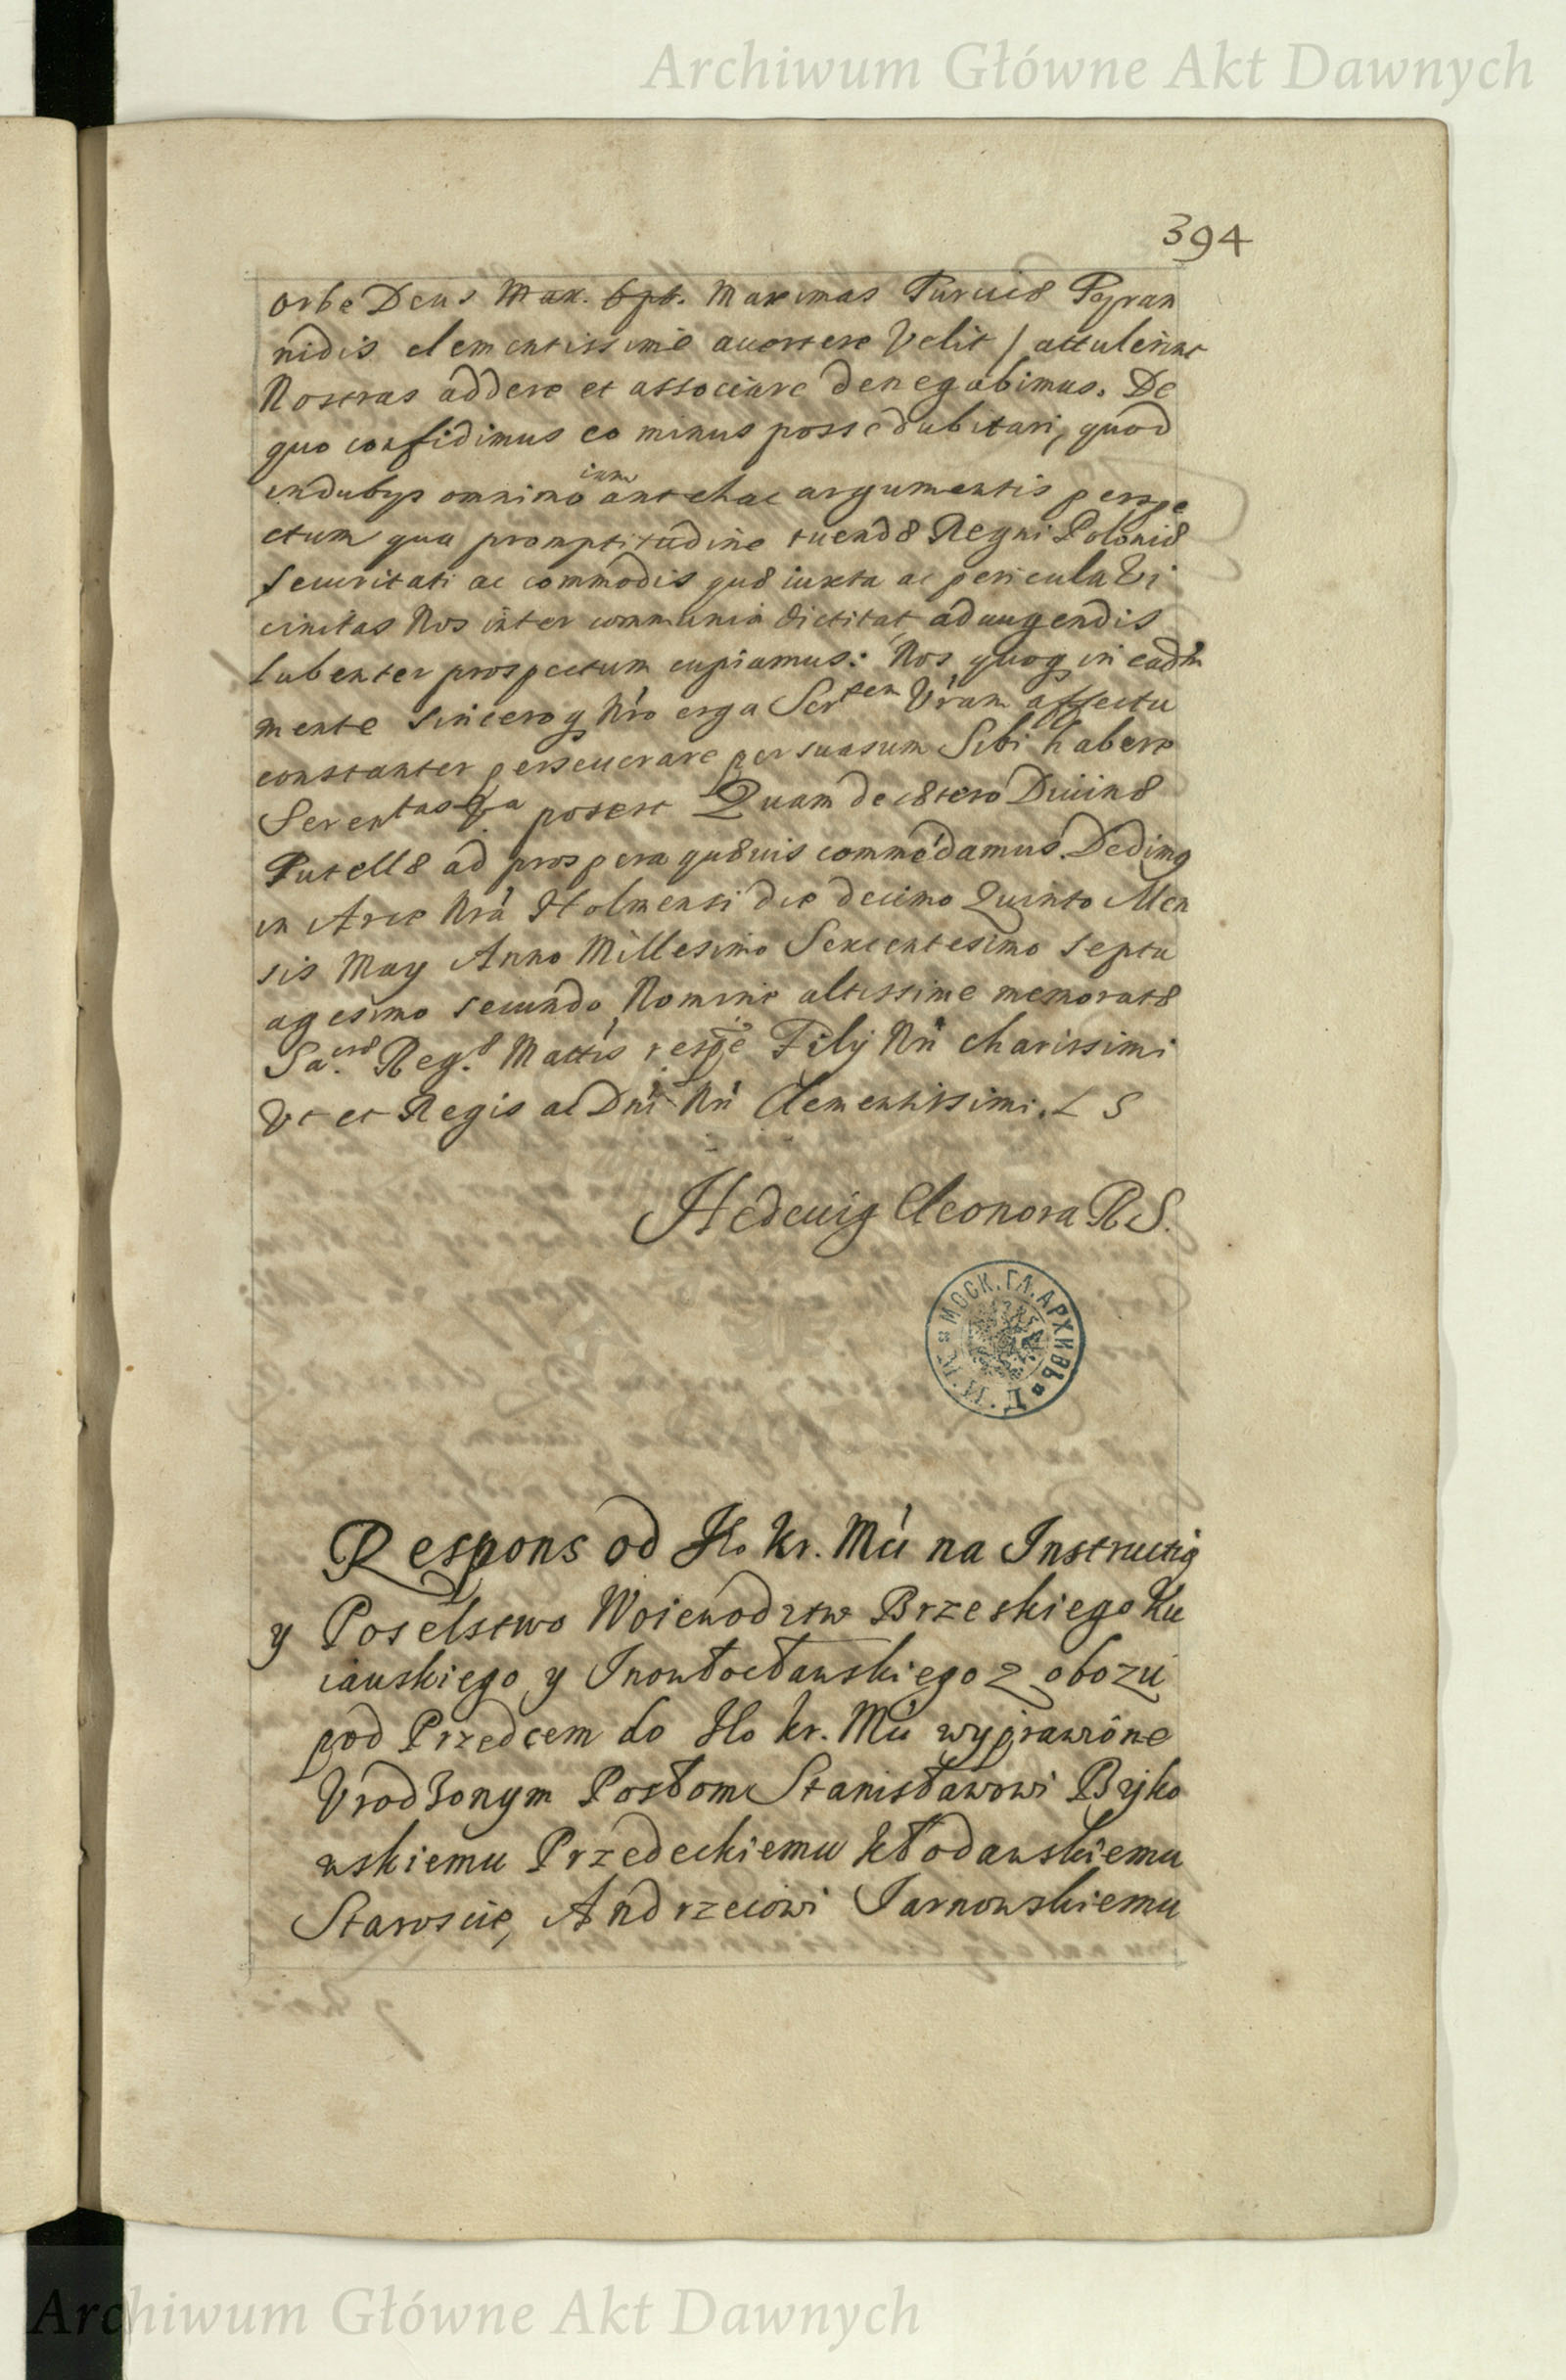 Archiwum Główne Akt Dawnych
394
orbe Deus Max. Opt. Maximas Turcicæ Tyran
nidis clementissime auertere Velit / attulerint
Nostras addere et associare denegabimus. De
quo confidimus eo minus posse dubitari, quod
indubys omnino iam antehac argumentis perspe
ctum qua promptitudine tuendæ Regni Poloniæ
securitati ac commodis quæ iuxta ac pericula Vi
cinitas Nos inter communia dictitat adaugendis
lubenter prospectum cupiamus: Nos quoq in eadm
mente sinceroq Nro erga Sertem Vram affectu
constanter perseuerare persuasum Sibi habere
Serentas Vra poterit Quam de cætero Diuinæ
Tutellæ ad prospera quæuis commedamus. Dedimq
in Arce Nra Holmensi die decimo Quinto Men
sis May Anno Millesimo Sexcentesimo septu
agesimo secundo Nomine altissime memoratæ
Sa.cræ Reg.æ Mattis respe Filij Nri charissimi
Vt et Regis ac Dni Nri Clementissimi. L S
Hedeuig Eleonora R S.
МОСК. ГЛ. АРХИВЪ
Respons od JKo kr. Mci na Instructią
y Poselstwo Woiewodztw Brzeskiego Ku
iauskiego y Inowłocławskiego z obozu
pod Przedcem do JKo kr. Mci wyprawione
Vrodzonym Posłom Stanisławowi Byko
wskiemu Przedeckiemu kłodawskiemu
Staroscie, Andrzeiowi Jarnowskiemu
Archiwum Główne Akt Dawnych